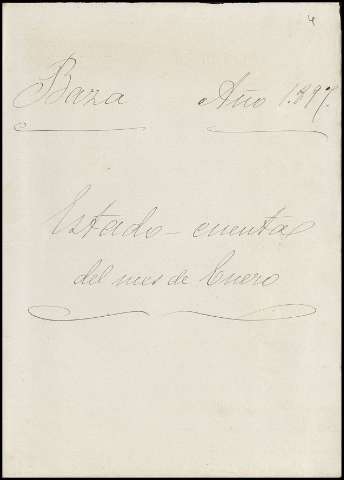 4
Baza Año 1.897.
Estado-cuenta
del mes de Enero